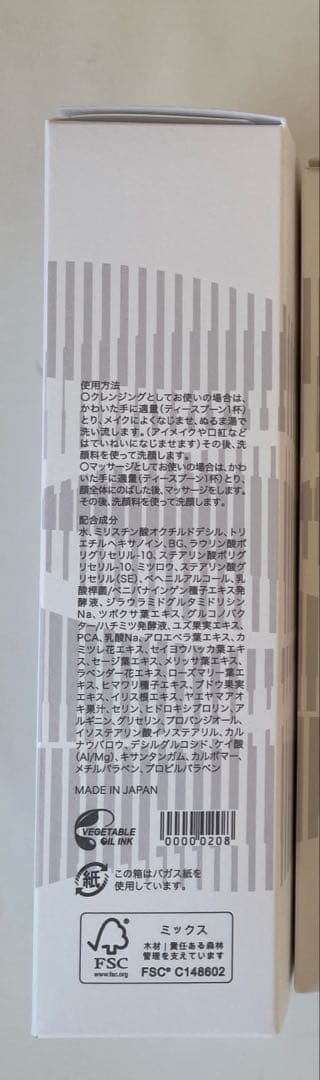 使用方法
〇クレンジングとしてお使いの場合は、
かわいた手に適量(ティースプーン1杯)
とり、メイクによくなじませ、ぬるま湯で
洗い流します。(アイメイクや口紅など
はていねいになじませます)その後、洗
顔料を使って洗顔します。
〇マッサージとしてお使いの場合は、かわ
いた手に適量(ティースプーン1杯)とり、
顔全体にのばした後、マッサージをします。
その後、洗顔料を使って洗顔します。
配合成分
水、ミリスチン酸オクチルドデシル、トリ
エチルヘキサノイン、BG、ラウリン酸ポ
リグリセリル-10、ステアリン酸ポリグ
リセリル-10、ミツロウ、ステアリン酸グ
リセリル(SE)、ベヘニルアルコール、乳
酸桿菌/ベニバナインゲン種子エキス発
酵液、ジラウラミドグルタミドリシン
Na、ツボクサ葉エキス、グルコノバク
ター/ハチミツ発酵液、ユズ果実エキス、
PCA、乳酸Na、アロエベラ葉エキス、カ
ミツレ花エキス、セイヨウハッカ葉エキ
ス、セージ葉エキス、メリッサ葉エキス、
ラベンダー花エキス、ローズマリー葉エ
キス、ヒマワリ種子エキス、ブドウ果実
エキス、イリス根エキス、ヤエヤマアオ
キ果汁、セリン、ヒドロキシプロリン、ア
ルギニン、グリセリン、プロパンジオール、
イソステアリン酸イソステアリル、カル
ナウバロウ、デシルグルコシド、ケイ酸
(Al/Mg)、キサンタンガム、カルボマー、
メチルパラベン、プロピルパラベン
MADE IN JAPAN
VEGETABLE
OIL INK
00000208
紙
この箱はバガス紙を
使用しています。
FSC
www.fsc.org
ミックス
木材|責任ある森林
管理を支えています
FSC® C148602